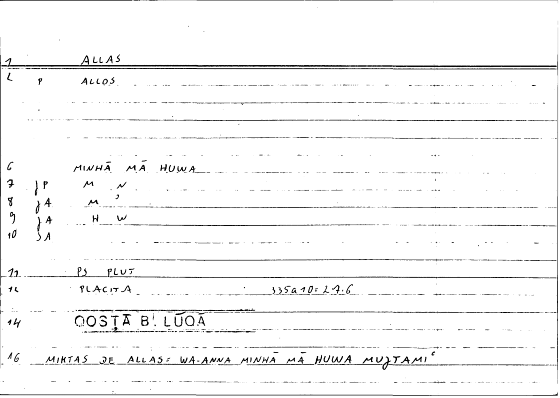 1 ALLAS
2 P ALLOS
6 MINHĀ MĀ HUWA
7 ʒP M N
8 ʒA M ʾ
9 ʒA H W
10 ʒA
11 PS PLUT
12 PLACITA 335a10=2.7.6
14 QOSṬĀ B. LŪQĀ
16 MIKTAS DE ALLAS= WA-ANNA MINHĀ MĀ HUWA MUʒTAMIʿ